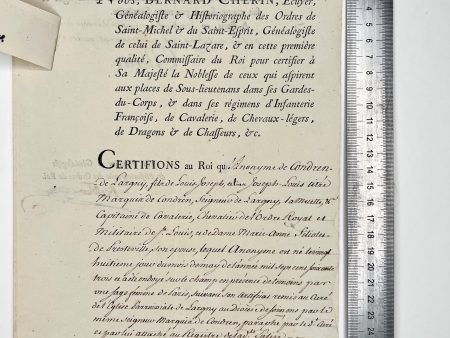 NOUS, BERNARD CHÉRIN, Ecuyer,
Généalogiste & Historiographe des Ordres de
Saint-Michel & du Saint-Esprit, Généalogiste
de celui de Saint-Lazare, & en cette première
qualité, Commissaire du Roi pour certifier à
Sa Majesté la Noblesse de ceux qui aspirent
aux places de Sous-lieutenans dans ses Gardes-
du-Corps, & dans ses régimens d'Infanterie
Françoise, de Cavalerie, de Chevaux-légers,
de Dragons & de Chasseurs, &c.
CERTIFIONS au Roi qu'Anonyme de Condren
de Largny, fils de Louis Joseph, Joseph Louis titré
Marquis de Condren, Seigneur de Largny, &c.
Capitaine de Cavalerie, Chevalier de l'Ordre Royal et
Militaire de St. Louis, et de Dame Marie Anne
de son epouse, lequel Anonyme est né le vingt
huitieme jour du mois de may de l'année mil sept cent soixante
trois et a été ondoyé sur le champ en presence de temoins par
une sage femme de Paris, suivant son certificat remis au Curé
de l'Eglise Parroissiale de Largny au Diocese de Soissons par le
même seigneur Marquis de Condren, paraphé par le d. Curé
et par lui attaché au Registre de lad. Eglise
3 4 5 6 7 8 9 10 11 12 13 14 15 16 17 18 19 20 21 22 23 24